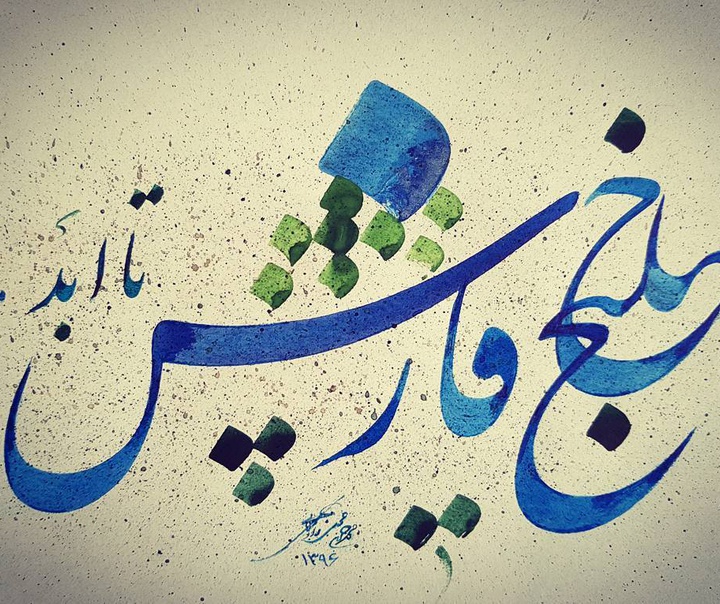 خلیج فارس
تا ابد
۱۳۹۶